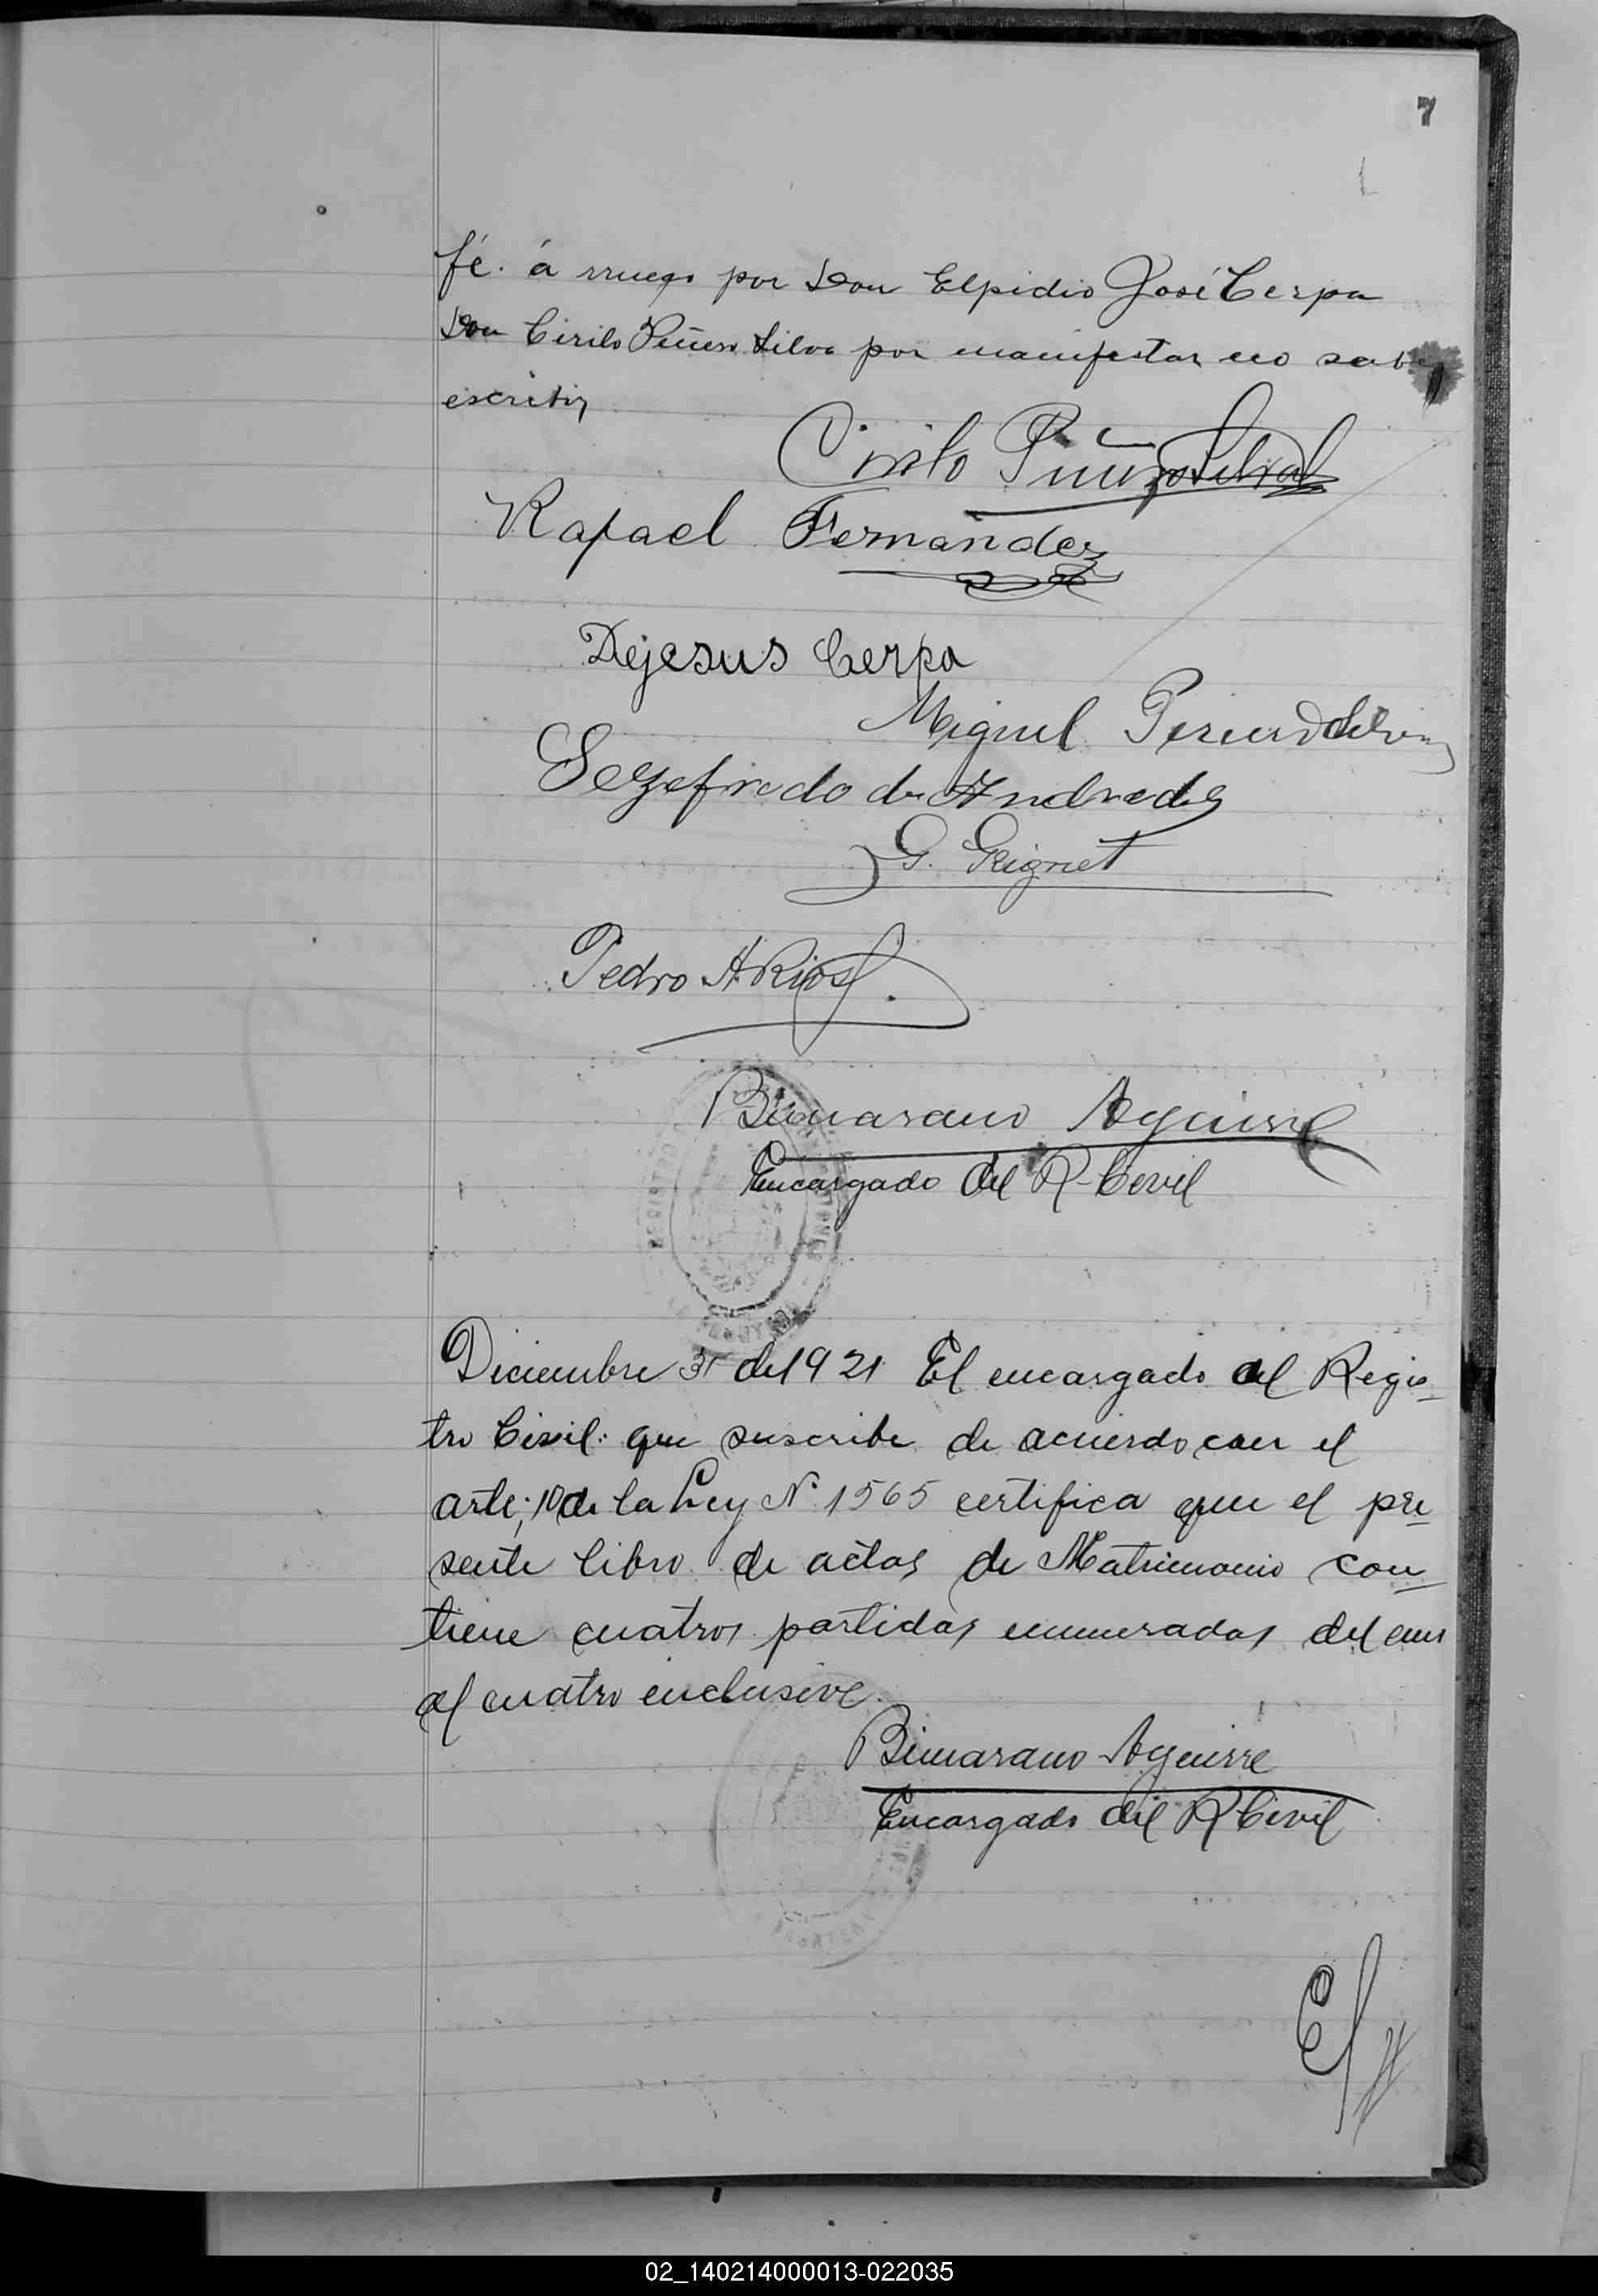 7
fé. á rruego por Don Elpidio José Cerpa
Don Cirilo Piñero Silva por manifestar no saber
escribir
Cirilo Piñero Silva
Rafael Fernández
Dejesus Cerpa
Miguel
Sezefredo de Andrades
G. Grignet
Pedro A Rios
Bimarano Aguirre
Encargado del R-Civil
REGISTRO
Diciembre 31 de 1921 El encargado del Regis-
tro Civil: que suscribe de acuerdo con el
arte; 10 de la Ley Nº 1565 certifica que el pre-
sente libro de actas de Matrimonio con-
tiene cuatros partidas enumeradas del uno
al cuatro inclusive.
Bimarano Aguirre
Encargado del R Civil
02_140214000013-022035